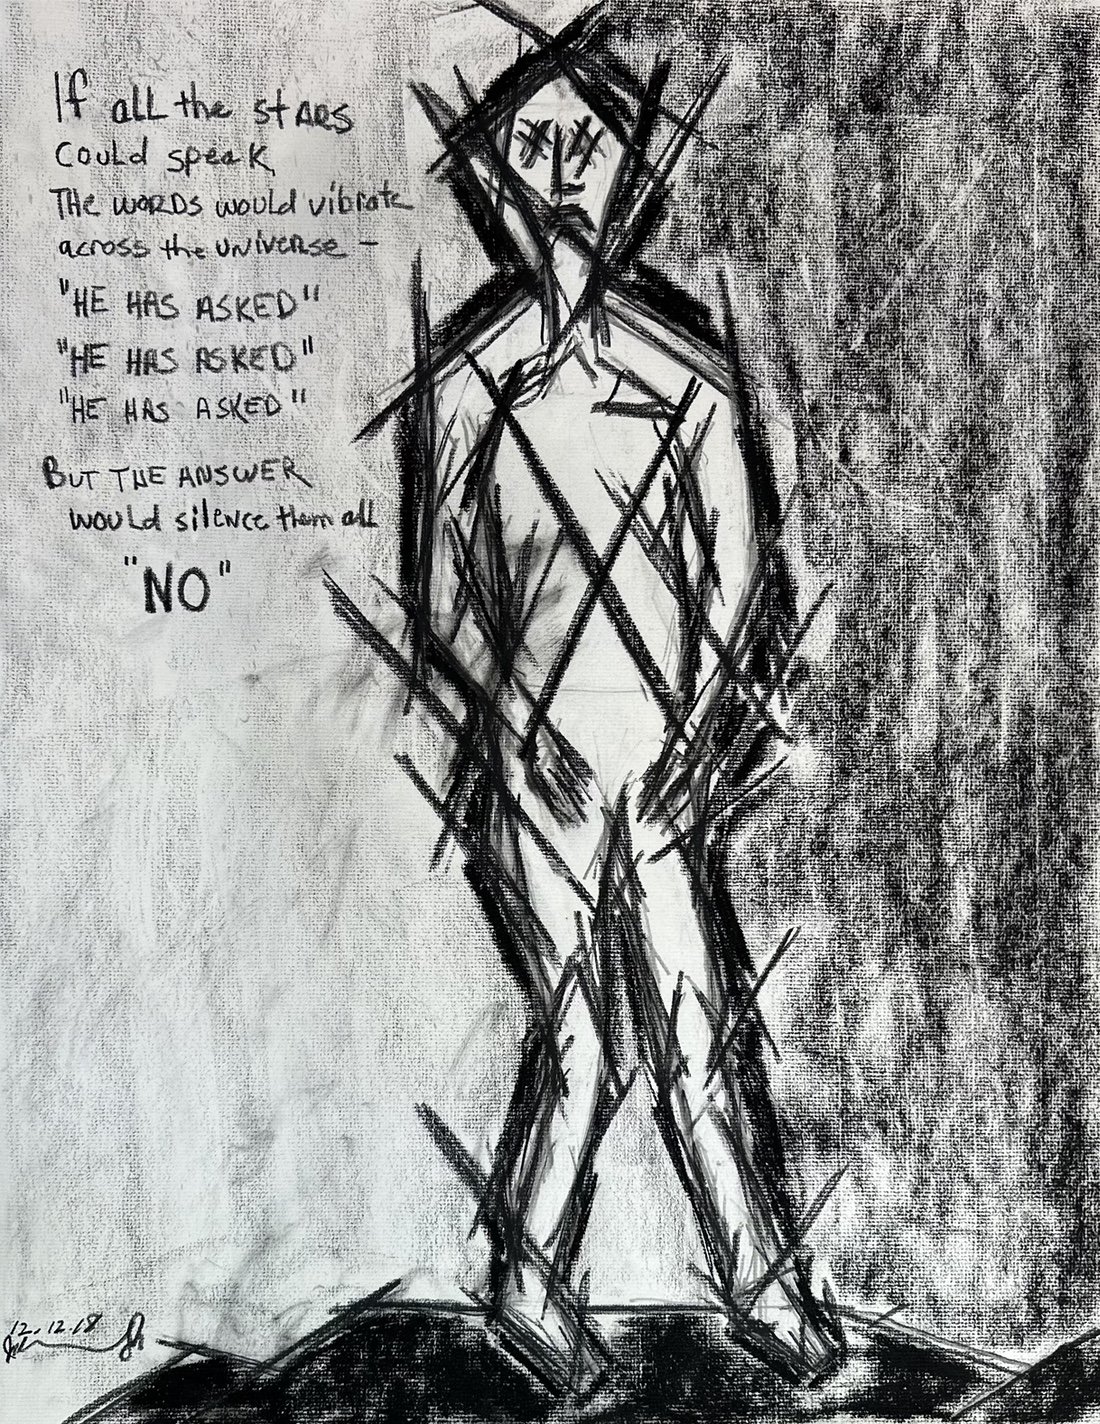 If all the stars
Could speak
The words would vibrate
across the universe –
"HE HAS ASKED"
"HE HAS ASKED"
"HE HAS ASKED"
BUT THE ANSWER
would silence them all
"NO"
12.12.18